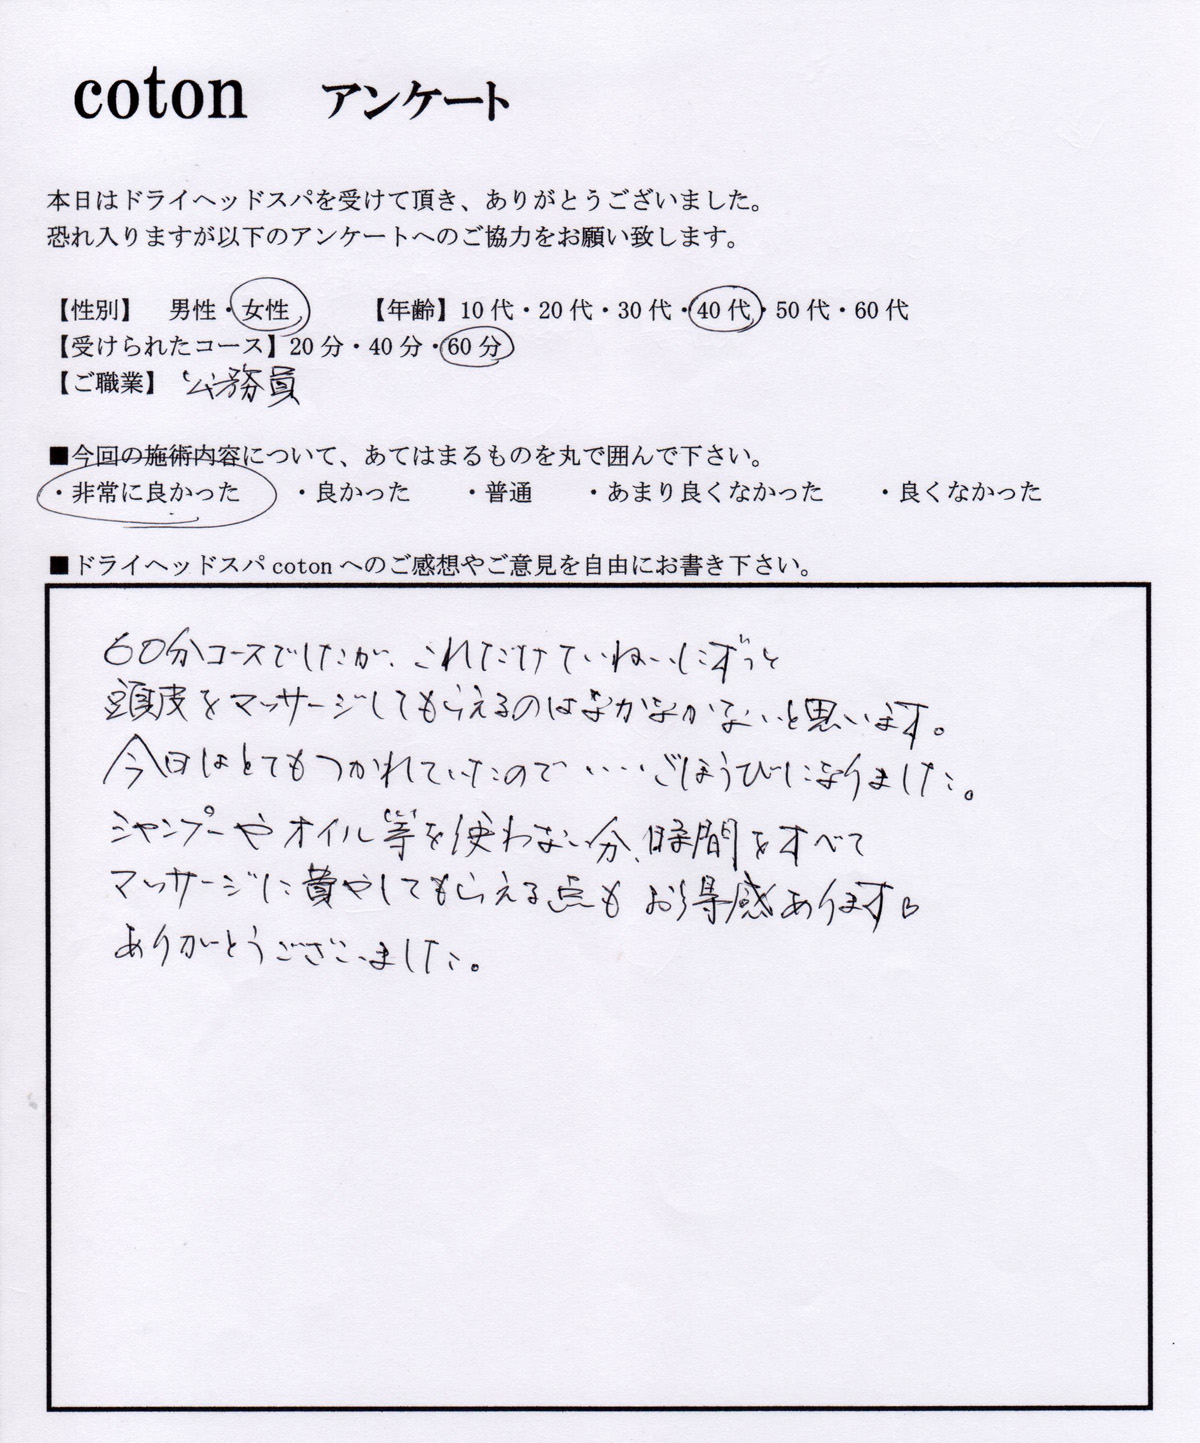 coton アンケート
本日はドライヘッドスパを受けて頂き、ありがとうございました。
恐れ入りますが以下のアンケートへのご協力をお願い致します。
【性別】 男性・女性 【年齢】10代・20代・30代・40代・50代・60代
【受けられたコース】20分・40分・60分
【ご職業】 公務員
■今回の施術内容について、あてはまるものを丸で囲んで下さい。
・非常に良かった ・良かった ・普通 ・あまり良くなかった ・良くなかった
■ドライヘッドスパcotonへのご感想やご意見を自由にお書き下さい。
60分コースでしたが、これだけていねいにずっと
頭皮をマッサージしてもらえるのはなかなかないと思います。
今日はとてもつかれていたので・・・ごほうびになりました。
シャンプーやオイル等を使わない分、時間をすべて
マッサージに費やしてもらえる点もお得感あります♡
ありがとうございました。